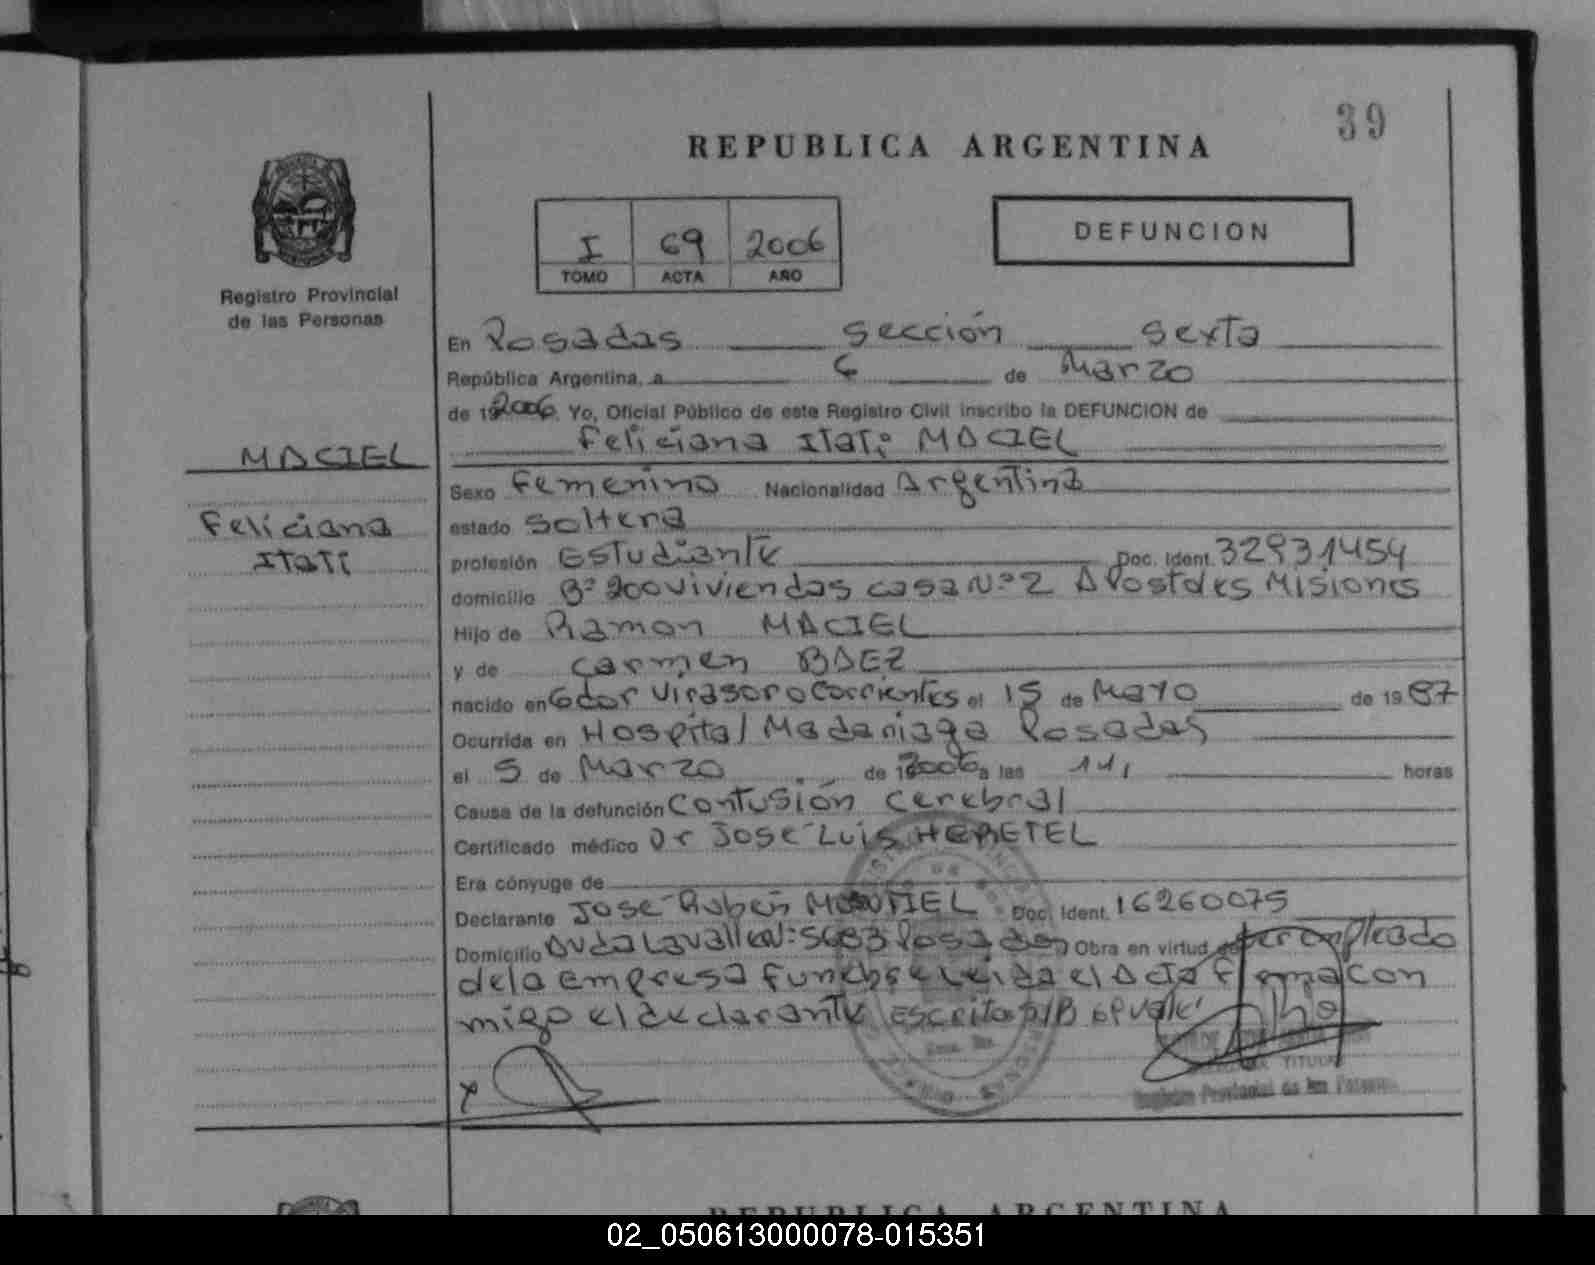 39
REPUBLICA ARGENTINA
I 69 2006
TOMO ACTA AÑO
DEFUNCION
Registro Provincial
de las Personas
En Posadas sección sexta
República Argentina, a 6 de Marzo
de 192006. Yo, Oficial Público de este Registro Civil inscribo la DEFUNCION de
Feliciana Itati MACIEL
MACIEL
Feliciana
Itati
Sexo Femenino Nacionalidad Argentina
estado soltera
profesión Estudiante Doc. Ident. 32931454
domicilio Bº 200 viviendas casa Nº 2 Apostoles Misiones
Hijo de Ramon MACIEL
y de Carmen BAEZ
nacido en Gdor Virasoro Corrientes el 15 de Mayo de 1987
Ocurrida en Hospital Madariaga Posadas
el 5 de Marzo de 2006 a las 11, horas
Causa de la defunción Contusión cerebral
Certificado médico Dr Jose Luis HERETEL
Era cónyuge de
Declarante Jose Ruben MONTIEL Doc. Ident. 16260075
Domicilio Avda Lavalle Nº 5683 Posadas Obra en virtud de ser empleado
de la empresa funebre Leida el Acta firma con
migo el declarante Escrito s/B 6 vale
x
TITULAR
Registro Provincial de las Personas
REPUBLICA ARGENTINA
02_050613000078-015351